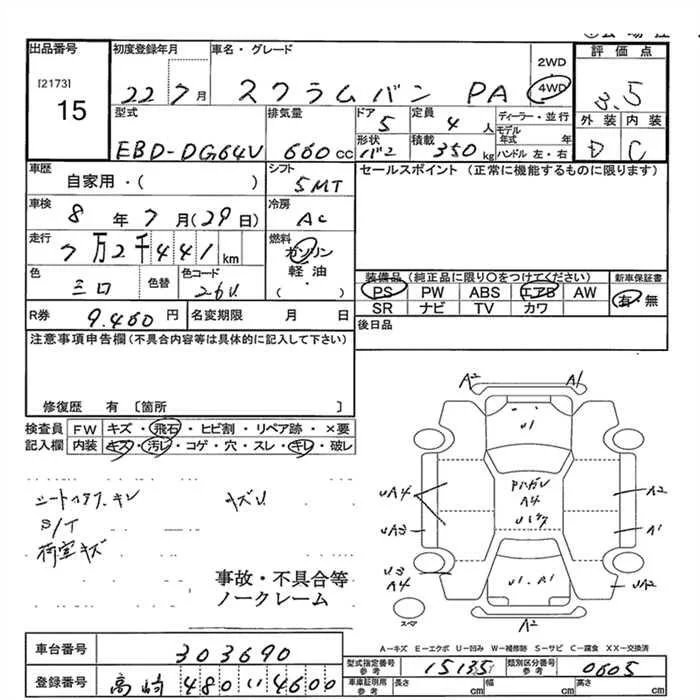 出品番号 初度登録年月 車名・グレード 2WD 評価点
[2173] 22 7月 スクラムバン PA 4WD 3.5
15 型式 排気量 ドア 5 定員 4人 ディーラー・並行 外装 内装
EBD-DG64V 660cc 形状 バン 積載 350kg モデル年式 年 ハンドル 左・右 D C
車歴 シフト セールスポイント(正常に機能するものに限ります)
自家用・( ) 5MT
車検 8年7月(29日) 冷房 AC
走行 7万2千441km 燃料 ガソリン
軽油・
( )
色 シロ 色替 色コード 26U
装備品(純正品に限り〇をつけてください) 新車保証書
PS PW ABS エアB AW 有・無
SR ナビ TV カワ
R券 9.460円 名変期限 月 日 後日品
注意事項申告欄(不具合内容等は具体的に記入して下さい)
修復歴 有 〔箇所 〕
検査員 FW キズ・飛石・ヒビ割・リペア跡・×要
記入欄 内装 キズ・汚レ・コゲ・穴・スレ・キレ・破レ
A2 A1
U1
UA4 A4 A2
UA3 A1
U3
A4 U1.A1 UA2
A2
S/T キズU
荷室キズ
事故・不具合等
ノークレーム
A-キズ E-エクボ U-凹み W-補修跡 S-サビ C-腐食 XX-交換済
車台番号 303690
型式指定番号 参考 15135 類別区分番号 参考 0605
登録番号 高崎 480い4600
車庫証明用 参考 長さ cm 幅 cm 高さ cm